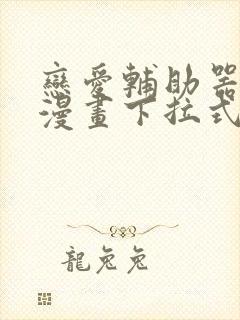 戀愛輔助器
漫畫下拉式
龍兔兔